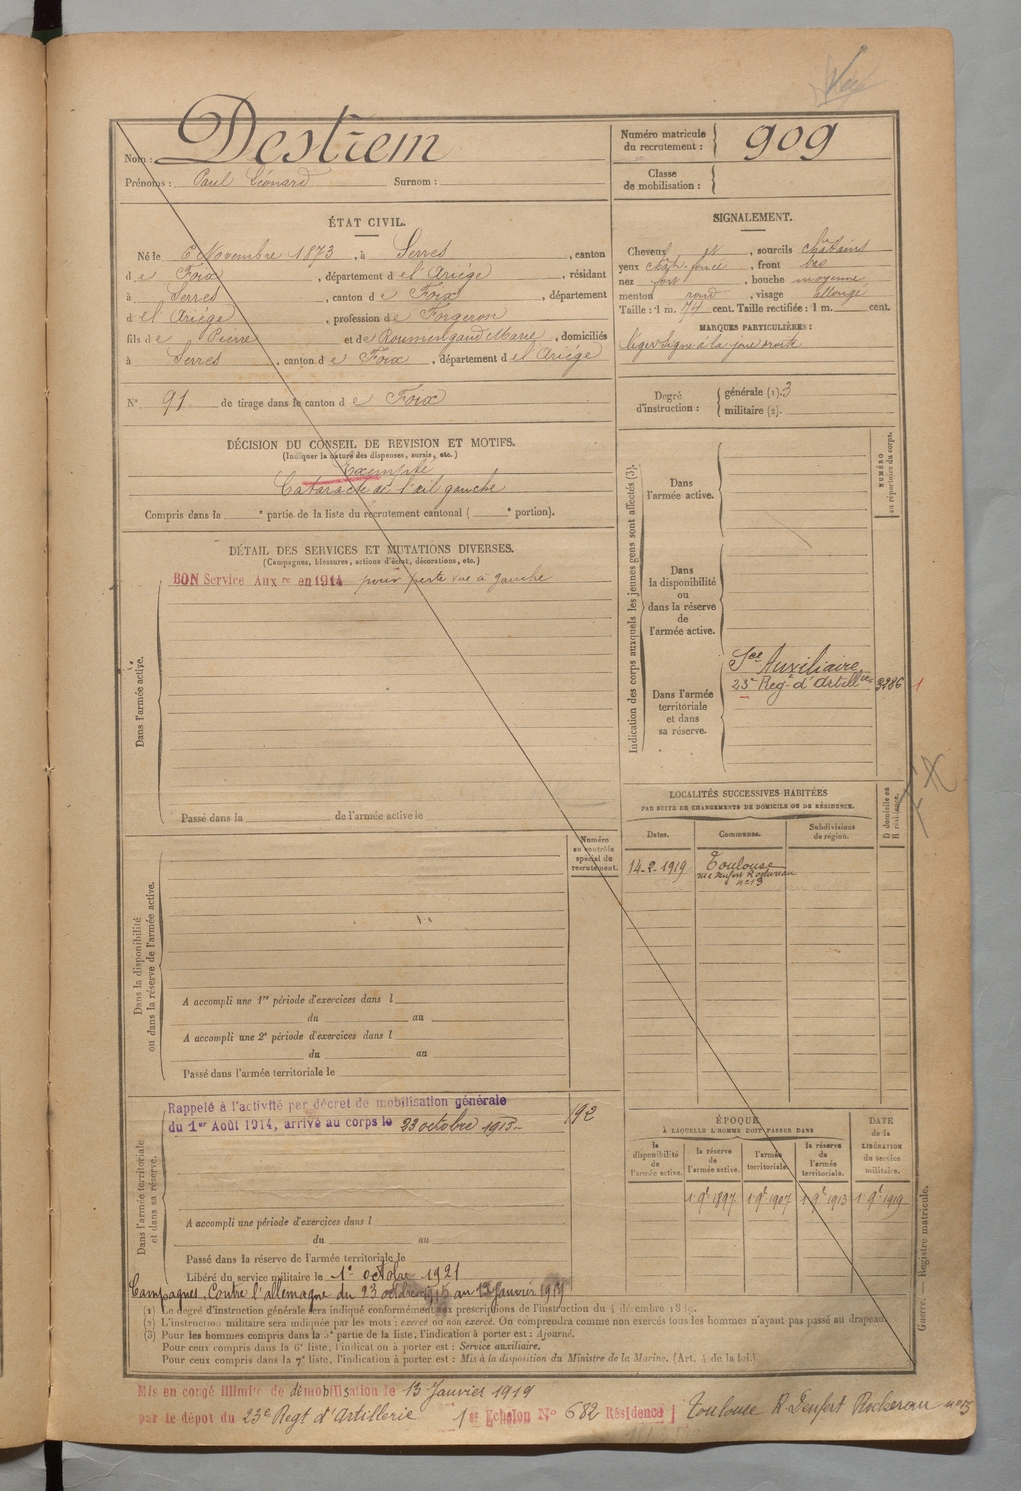 Nom : Destrem
Prénoms : Paul Léonard Surnom :
Numéro matricule du recrutement : 909
Classe de mobilisation :
ÉTAT CIVIL.
Né le 6 Novembre 1873, à Serres, canton
de Foix, département de l'Ariège, résidant
à Serres, canton de Foix, département
de l'Ariège, profession de Forgeron
fils de Pierre et de Roumengaud Marie, domiciliés
à Serres, canton de Foix, département de l'Ariège
N° 91 de tirage dans le canton de Foix
SIGNALEMENT.
Cheveux et, sourcils châtains
yeux chât. foncé, front bas
nez fort, bouche moyenne
menton rond, visage allongé
Taille : 1 m. 74 cent. Taille rectifiée : 1 m. cent.
MARQUES PARTICULIÈRES :
léger signe à la joue droite
Degré d'instruction : générale (1). 3
militaire (2).
DÉCISION DU CONSEIL DE REVISION ET MOTIFS.
(Indiquer la nature des dispenses, sursis, etc.)
Exempté
Cataracte de l'œil gauche
Compris dans la e partie de la liste du recrutement cantonal ( e portion).
DÉTAIL DES SERVICES ET MUTATIONS DIVERSES.
(Campagnes, blessures, actions d'éclat, décorations, etc.)
BON Service Aux re en 1914 pour perte vue à gauche
Dans l'armée active.
Passé dans la de l'armée active le
Numéro au contrôle spécial du recrutement.
Dans la disponibilité ou dans la réserve de l'armée active.
A accompli une 1re période d'exercices dans l
du au
A accompli une 2e période d'exercices dans l
du au
Passé dans l'armée territoriale le
Dans l'armée territoriale et dans sa réserve.
Rappelé à l'activité par décret de mobilisation générale
du 1er Août 1914, arrivé au corps le 23 octobre 1915
192
A accompli une période d'exercices dans l
du au
Passé dans la réserve de l'armée territoriale le
Libéré du service militaire le 1er octobre 1921
Campagnes. Contre l'allemagne du 23 octobre 1915 au 13 Janvier 1919
Indication des corps auxquels les jeunes gens sont affectés (3).
NUMÉRO au répertoire du corps.
Dans l'armée active.
Dans la disponibilité ou dans la réserve de l'armée active.
Dans l'armée territoriale et dans sa réserve.
Sce Auxiliaire
23e Regt d'Artillrie 3286 1
LOCALITÉS SUCCESSIVES HABITÉES
PAR SUITE DE CHANGEMENTS DE DOMICILE OU DE RÉSIDENCE.
D domicile ou R résidence.
Dates. Communes. Subdivisions de région.
14-2-1919 Toulouse
rue Denfert Rochereau
n° 13
ÉPOQUE
À LAQUELLE L'HOMME DOIT PASSER DANS
DATE de la LIBÉRATION du service militaire.
la disponibilité de l'armée active. la réserve de l'armée active. l'armée territoriale. la réserve de l'armée territoriale.
1 9e 1897 1 9e 1907 1 9e 1913 1 9e 1919
(1) Le degré d'instruction générale sera indiqué conformément aux prescriptions de l'instruction du 4 décembre 1889.
(2) L'instruction militaire sera indiquée par les mots : exercé ou non exercé. On comprendra comme non exercés tous les hommes n'ayant pas passé au drapeau.
(3) Pour les hommes compris dans la 5e partie de la liste, l'indication à porter est : Ajourné.
Pour ceux compris dans la 6e liste, l'indication à porter est : Service auxiliaire.
Pour ceux compris dans la 7e liste, l'indication à porter est : Mis à la disposition du Ministre de la Marine. (Art. 4 de la loi.)
Guerre. — Registre matricule.
Mis en congé illimité de démobilisation le 13 Janvier 1919
par le dépôt du 23e Regt d'Artillerie 1er Echelon N° 682 Résidence Toulouse R. Denfert Rochereau n° 13